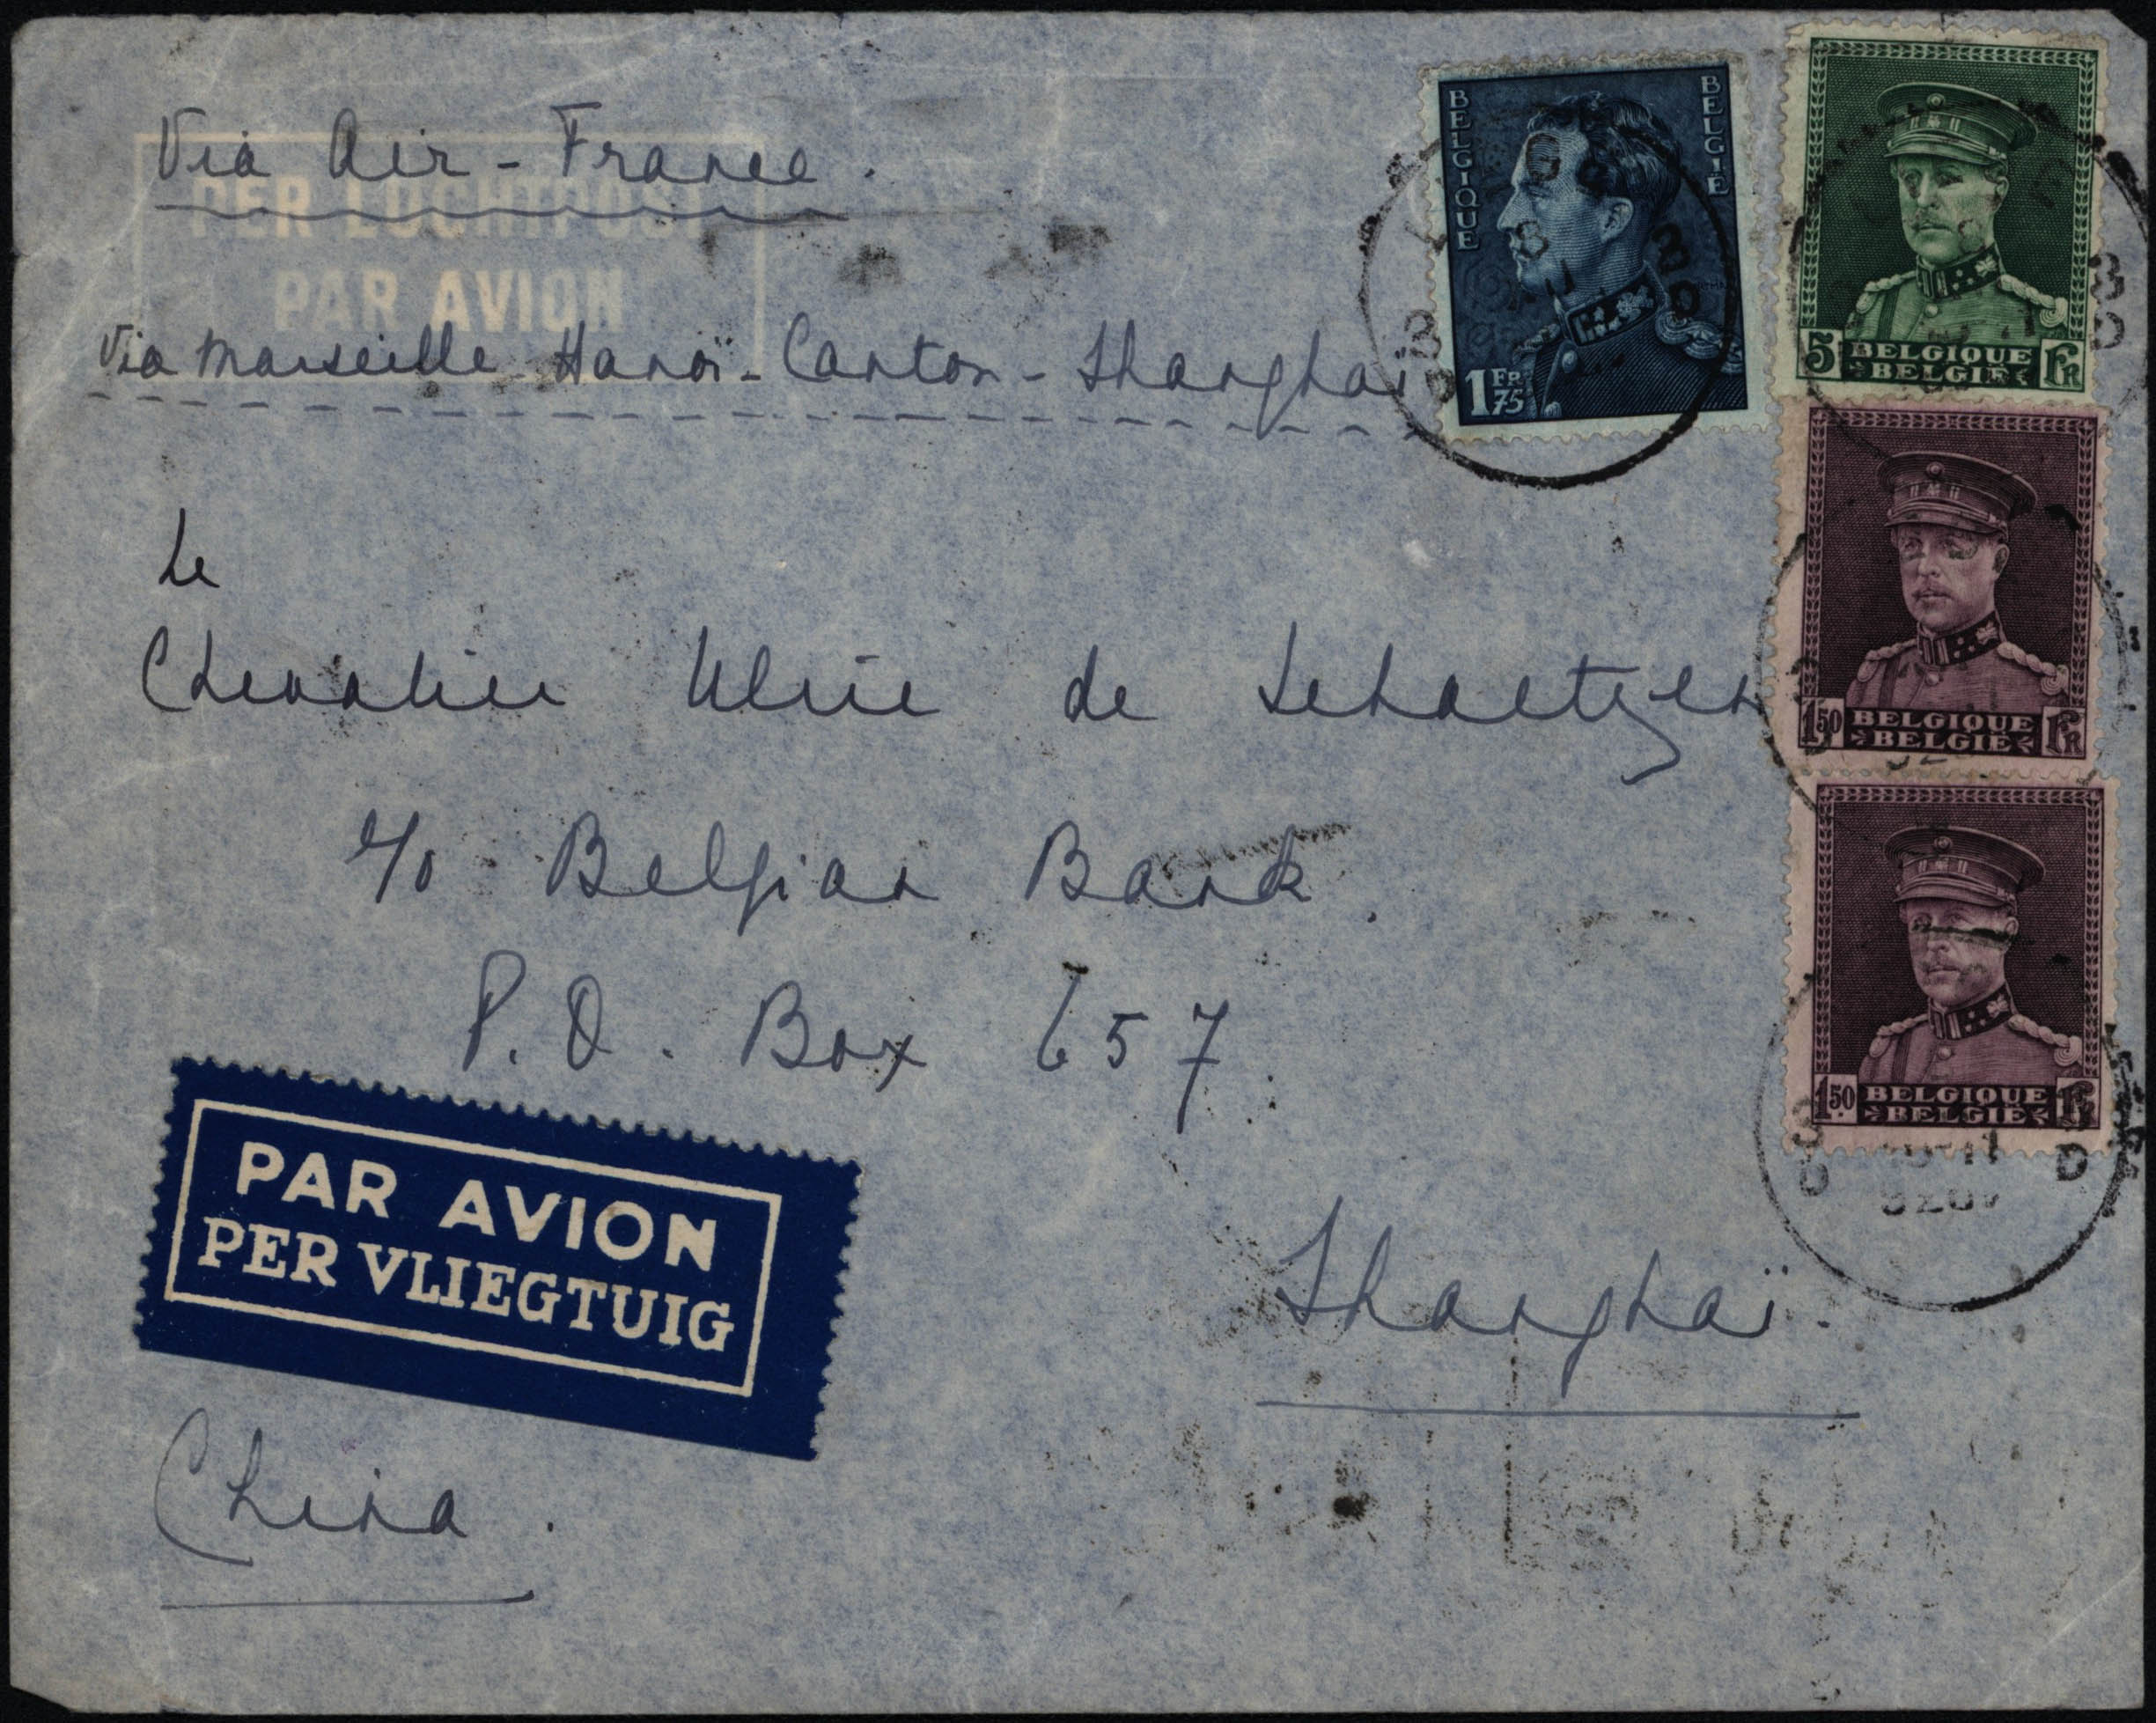 Via Air - France.
PER LUCHTPOST
PAR AVION
Via Marseille - Hanoï - Canton - Shanghaï
BELGIQUE
BELGIË
1 FR 75
5 BELGIQUE FR
BELGIË
Le
Chevalier Ulric de Schaetzen
1,50 BELGIQUE FR
BELGIË
c/o Belgian Bank.
P.O. Box 657
1,50 BELGIQUE FR
BELGIË
PAR AVION
PER VLIEGTUIG
Shanghaï.
China.